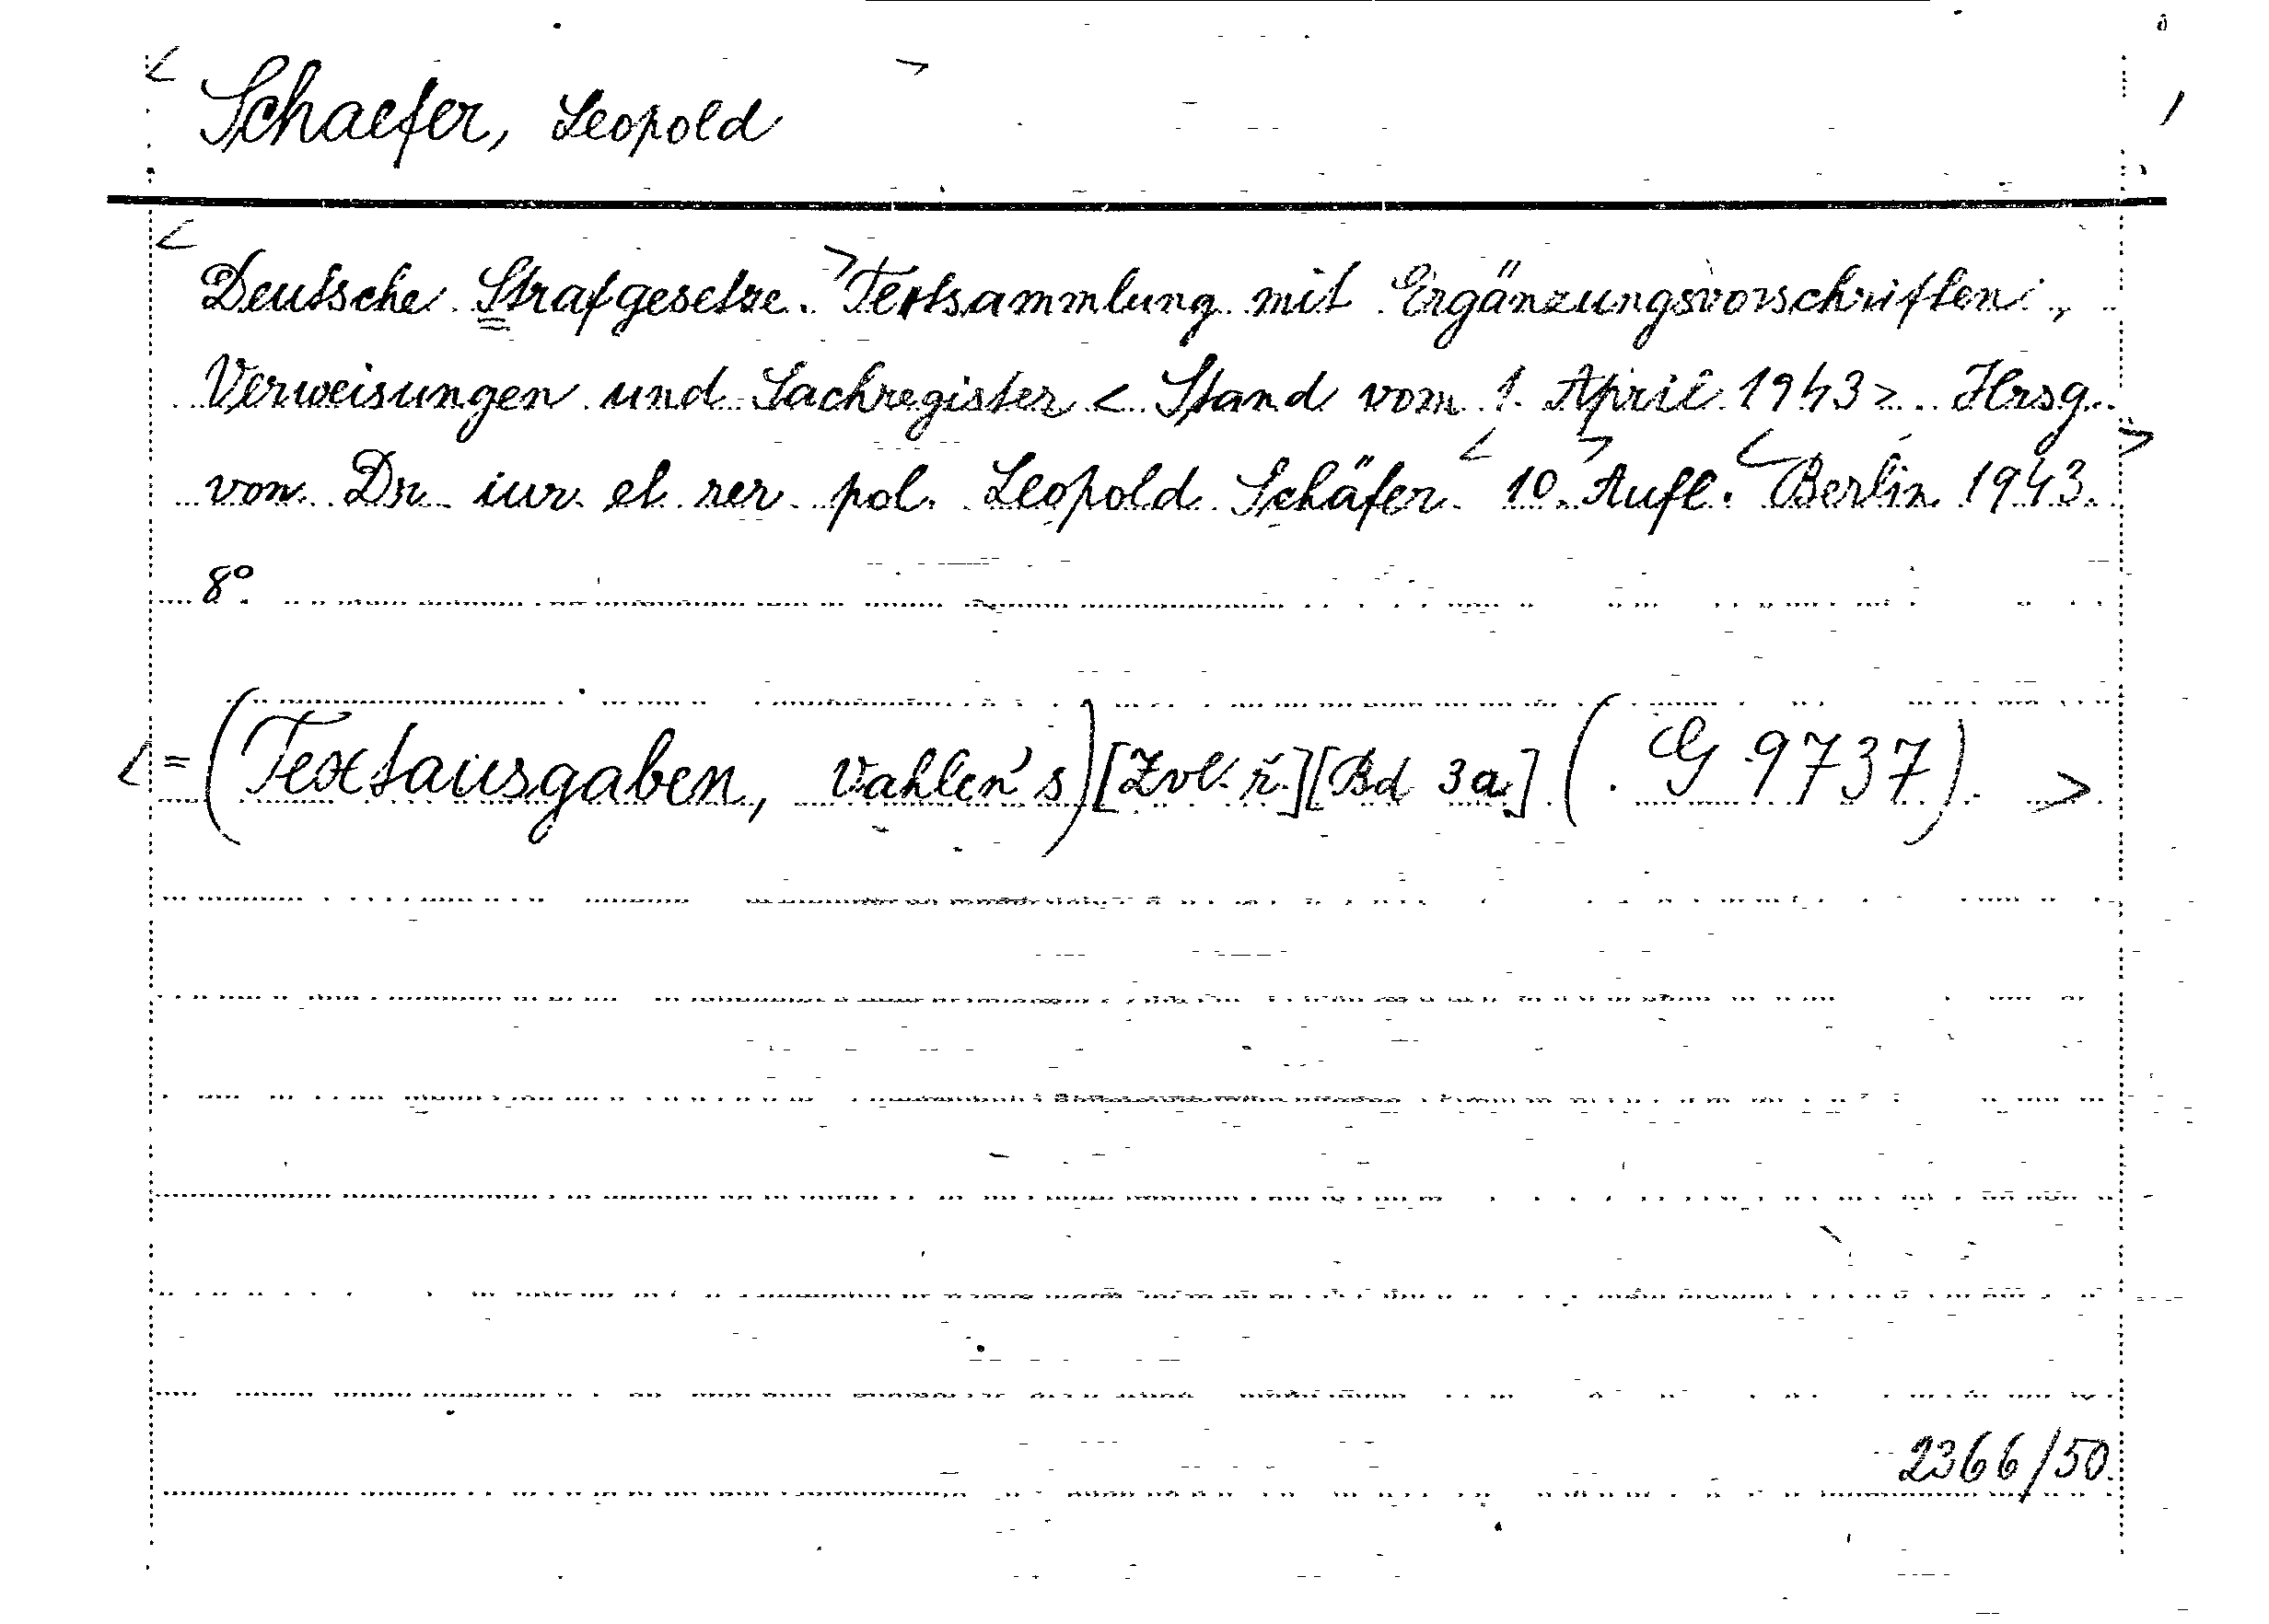 < Schaefer, Leopold >
< Deutsche Strafgesetze. > Textsammlung mit Ergänzungsvorschriften,
Verweisungen und Sachregister < Stand vom 1. April 1943 >. Hrsg.
von Dr. iur. et. rer. pol. Leopold Schäfer. < 10. > Aufl. < Berlin 1943. >
8°.
< = (Textausgaben, Vahlen's) [Zvl. r.] [Bd 3a] (G 9737). >
2366/50